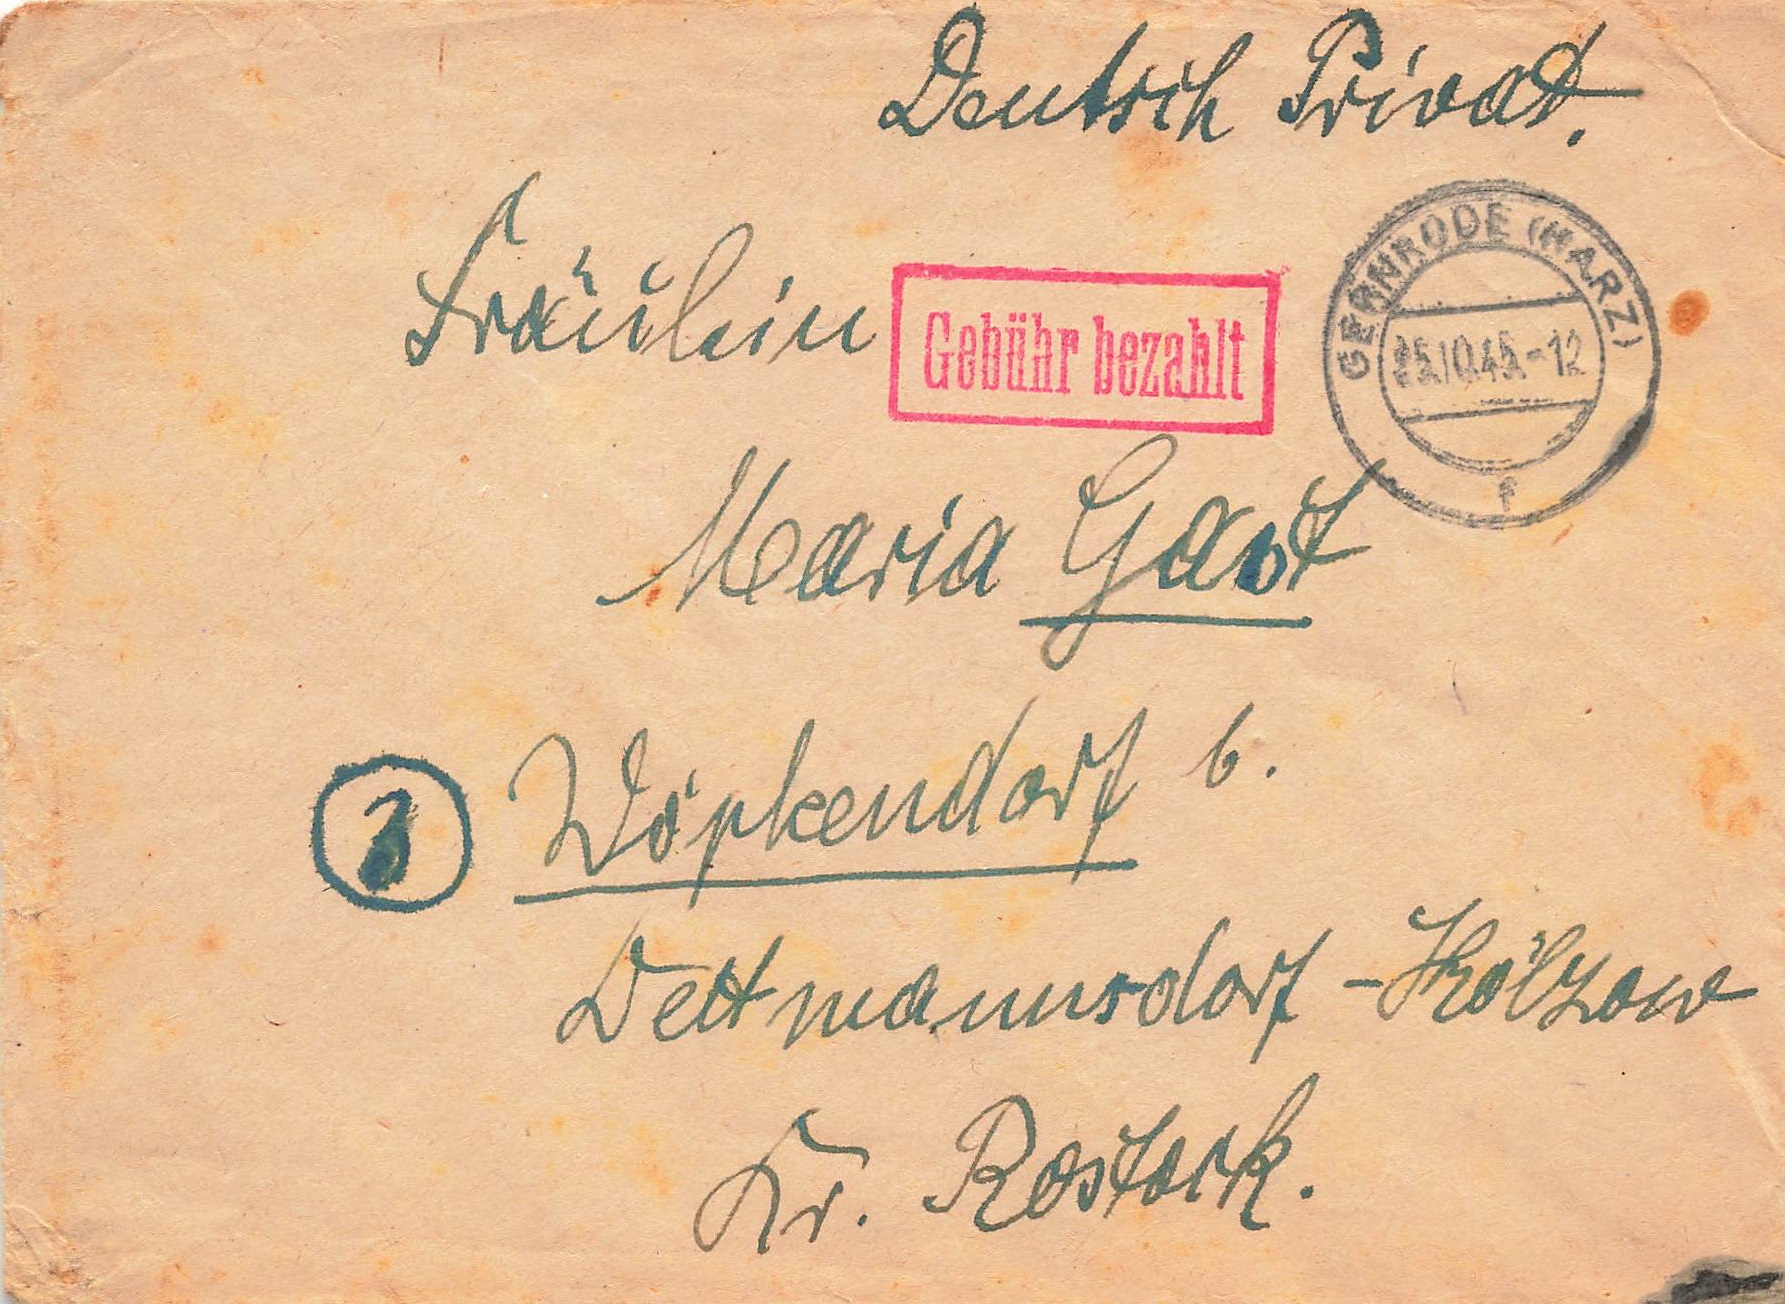 Deutsch Privat.
Fräulein
Gebühr bezahlt
GERNRODE (HARZ)
25.10.45.-12
f
Maria Gast
Wöpkendorf b.
Dettmannsdorf - Kölzow
Kr. Rostock.